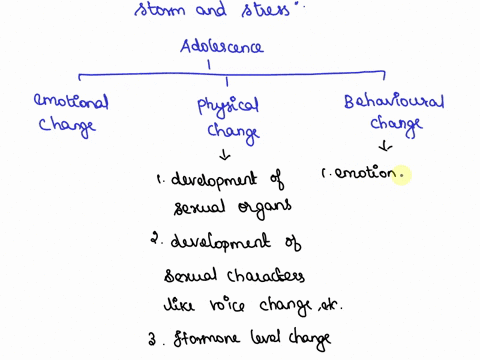 storm and stress".
Adolescence
emotional change
Physical change
Behavioural change
1. development of sexual organs
2. development of sexual characters like voice change, etc.
3. Hormone level change
1. emotion.